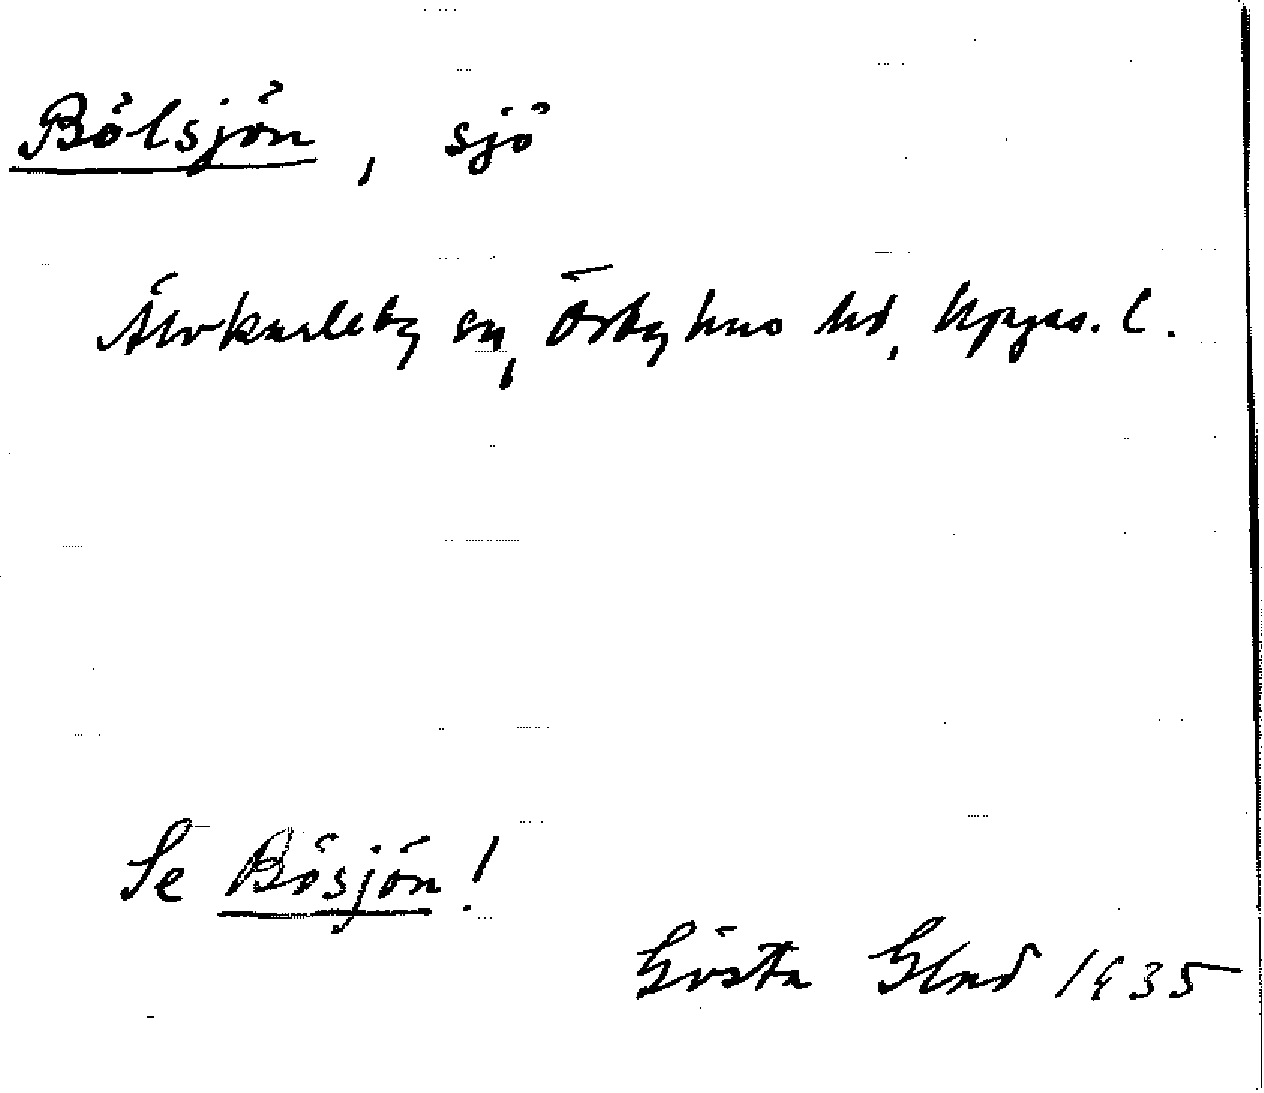 Bölsjön, sjö
Älvkarleby sn, Örbyhus hd, Uppsa. l.
Se Bösjön!
Gösta Glad 1935